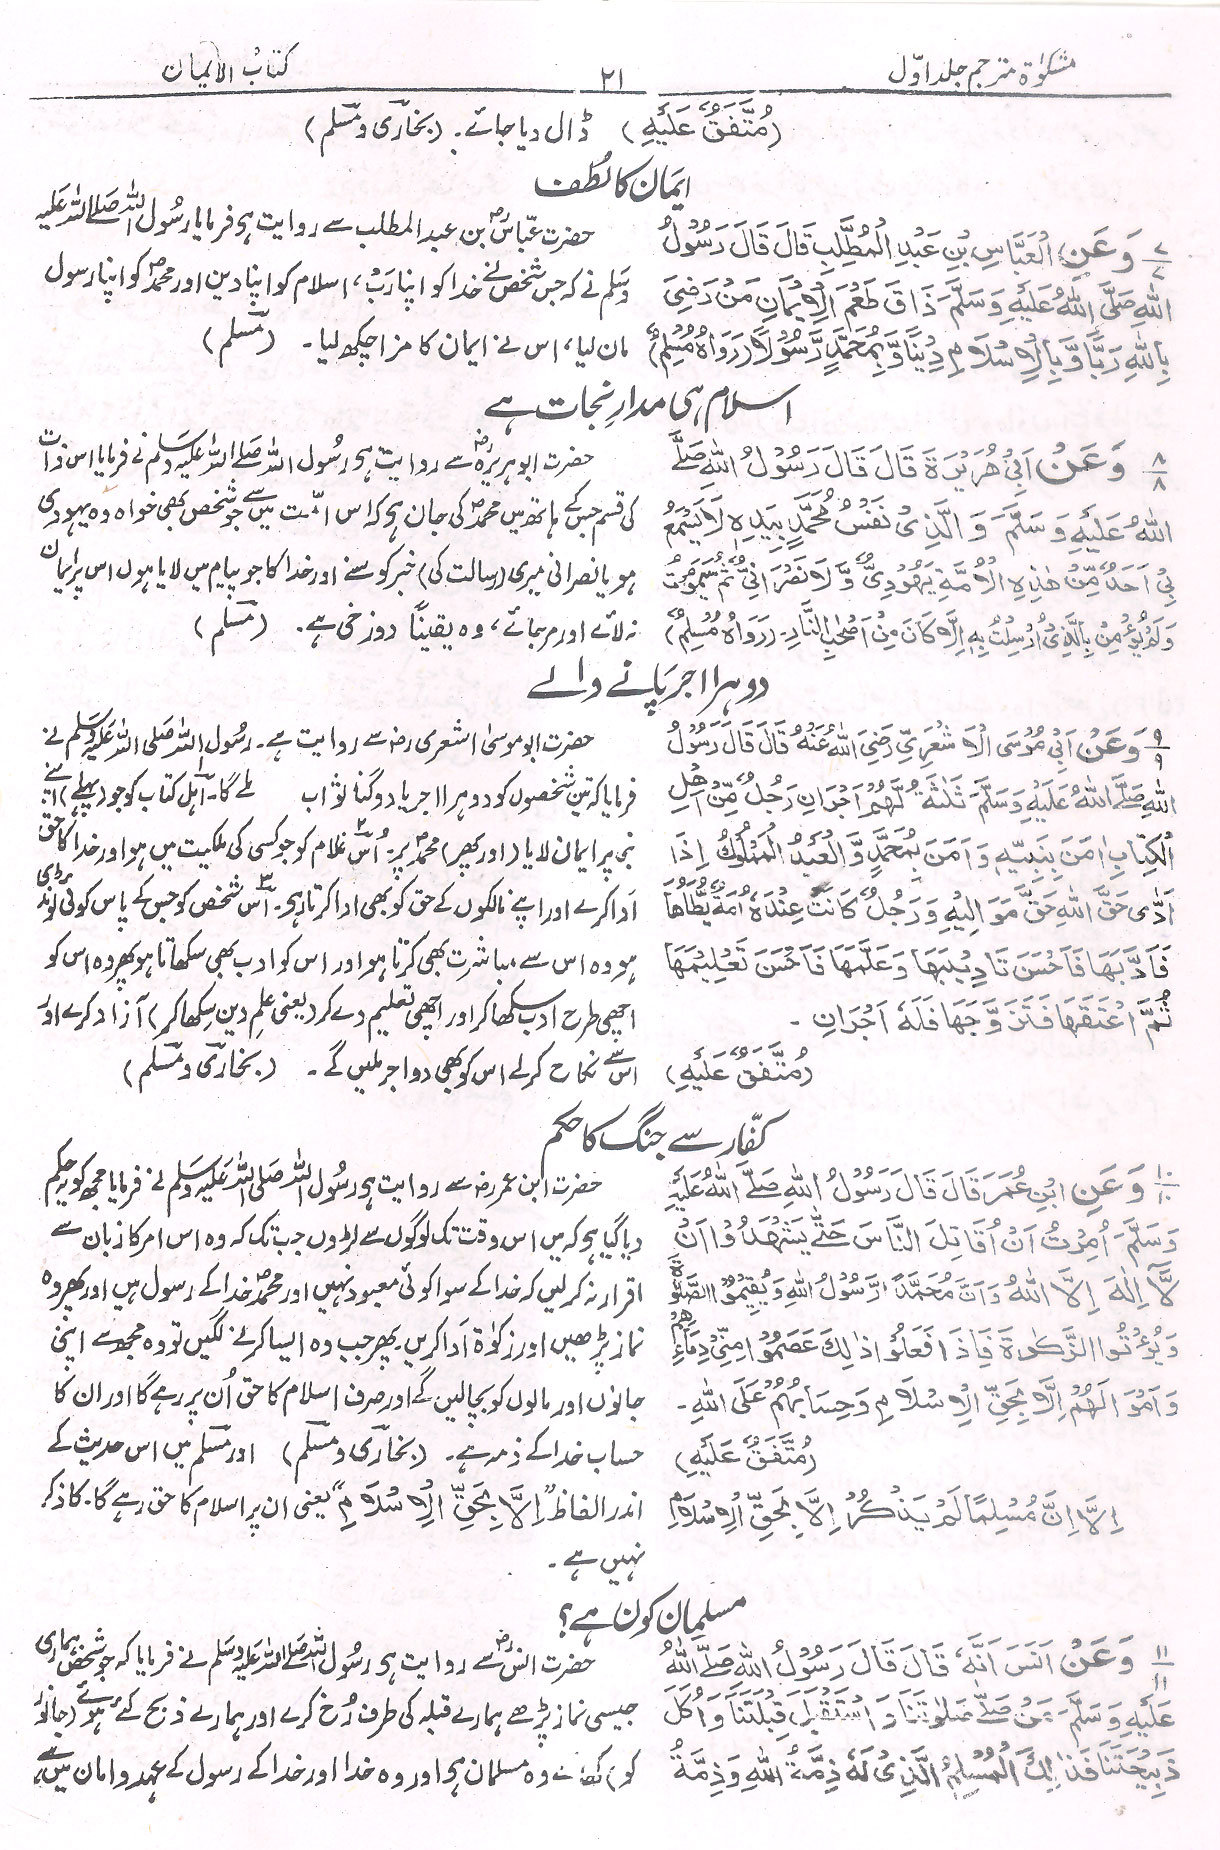 مشکوٰۃ مترجم جلد اوّل
۲۱
کتابُ الایمان
(مُتَّفَقٌ عَلَیْہِ)
ڈال دیا جائے۔ (بخاری و مسلم)
ایمان کا لُطف
۷/۷ وَعَنِ الْعَبَّاسِ بْنِ عَبْدِ الْمُطَّلِبِ قَالَ قَالَ رَسُوْلُ
اللّٰہِ صَلَّی اللّٰہُ عَلَیْہِ وَسَلَّمَ ذَاقَ طَعْمَ الْاِیْمَانِ مَنْ رَضِیَ
بِاللّٰہِ رَبًّا وَّبِالْاِسْلَامِ دِیْنًا وَّبِمُحَمَّدٍ رَّسُوْلًا (رَوَاہُ مُسْلِمٌ)
حضرت عبّاسؓ بن عبد المطلب سے روایت ہو فرمایا رسُول اللہ صلے اللہ علیہ
وسلم نے کہ جس شخص نے خدا کو اپنا رَبْ، اسلام کو اپنا دین اور محمدؐ کو اپنا رسول
مان لیا، اس نے ایمان کا مزا چکھ لیا۔ (مسلم)
اسلام ہی مدارِ نجات ہے
۸/۸ وَعَنْ اَبِیْ ھُرَیْرَۃَ قَالَ قَالَ رَسُوْلُ اللّٰہِ صَلَّے
اللّٰہُ عَلَیْہِ وَسَلَّمَ وَالَّذِیْ نَفْسُ مُحَمَّدٍ بِیَدِہٖ لَا یَسْمَعُ
بِیْ اَحَدٌ مِّنْ ھٰذِہِ الْاُمَّۃِ یَھُوْدِیٌّ وَّلَا نَصْرَانِیٌّ ثُمَّ یَمُوْتُ
وَلَمْ یُؤْمِنْ بِالَّذِیْ اُرْسِلْتُ بِہٖ اِلَّا کَانَ مِنْ اَصْحٰبِ النَّارِ۔ (رَوَاہُ مُسْلِمٌ)
حضرت ابوہریرہؓ سے روایت ہو رسُول اللہ صلے اللہ علیہ وسلم نے فرمایا اس ذات
کی قسم جس کے ہاتھ میں محمدؐ کی جان ہو کہ اس اُمّت میں سے جو شخص بھی خواہ وہ یہودی
ہو یا نصرانی میری (رسالت کی) خبر کو سنے اور خدا کا جو پیام میں لایا ہوں اس پر ایمان
نہ لائے اور مرجائے، وہ یقیناً دوزخی ہے۔ (مسلم)
دوہرا اجر پانے والے
۹/۹ وَعَنْ اَبِیْ مُوْسَی الْاَشْعَرِیِّ رَضِیَ اللّٰہُ عَنْہُ قَالَ قَالَ رَسُوْلُ
اللّٰہِ صَلَّے اللّٰہُ عَلَیْہِ وَسَلَّمَ ثَلٰثَۃٌ لَّھُمْ اَجْرَانِ رَجُلٌ مِّنْ اَھْلِ
الْکِتٰبِ اٰمَنَ بِنَبِیِّہٖ وَاٰمَنَ بِمُحَمَّدٍ وَّالْعَبْدُ الْمَمْلُوْکُ اِذَا
اَدّٰی حَقَّ اللّٰہِ حَقَّ مَوَالِیْہِ وَرَجُلٌ کَانَتْ عِنْدَہٗ اَمَۃٌ یَّطَأُھَا
فَاَدَّبَھَا فَاَحْسَنَ تَادِیْبَھَا وَعَلَّمَھَا فَاَحْسَنَ تَعْلِیْمَھَا
ثُمَّ اَعْتَقَھَا فَتَزَوَّجَھَا فَلَہٗ اَجْرَانِ۔
(مُتَّفَقٌ عَلَیْہِ)
حضرت ابوموسیٰ اشعری رضؓ سے روایت ہے۔ رسُول اللہ صلی اللہ علیہ وسلم نے
فرمایا کہ تین شخصوں کو دوہرا اجر یا دوگنا ثواب ملے گا۔ اہل کتاب کو جو (پہلے) اپنے
نبی پر ایمان لایا (اور پھر) محمدؐ پر۔ اُس غلام کو جو کسی کی ملکیت میں ہو اور خدا کا حق
اَدا کرے اور اپنے مالکوں کے حق کو بھی ادا کرتا ہو۔ اس شخص کو جس کے پاس کوئی لونڈی
ہو وہ اس سے مباشرت بھی کرتا ہو اور اس کو ادب بھی سکھاتا ہو پھر وہ اس کو
اچھی طرح ادب سکھا کر اور اچھی تعلیم دے کر (یعنی علم دین سکھا کر) آزاد کرے اور
اس سے نکاح کرلے اس کو بھی دو اجر ملیں گے۔ (بخاری و مسلم)
کفّار سے جنگ کا حکم
۱۰/۱۰ وَعَنِ ابْنِ عُمَرَ قَالَ قَالَ رَسُوْلُ اللّٰہِ صَلَّے اللّٰہُ عَلَیْہِ
وَسَلَّمَ اُمِرْتُ اَنْ اُقَاتِلَ النَّاسَ حَتّٰی یَشْھَدُوْا اَنْ
لَّآ اِلٰہَ اِلَّا اللّٰہُ وَاَنَّ مُحَمَّدًا رَّسُوْلُ اللّٰہِ وَیُقِیْمُوا الصَّلٰوۃَ
وَیُؤْتُوا الزَّکٰوۃَ فَاِذَا فَعَلُوْا ذٰلِکَ عَصَمُوْا مِنِّیْ دِمَاءَھُمْ
وَاَمْوَالَھُمْ اِلَّا بِحَقِّ الْاِسْلَامِ وَحِسَابُھُمْ عَلَی اللّٰہِ۔
(مُتَّفَقٌ عَلَیْہِ)
اِلَّا اَنَّ مُسْلِمًا لَمْ یَذْکُرْ اِلَّا بِحَقِّ الْاِسْلَامِ
حضرت ابن عمر رضؓ سے روایت ہو رسُول اللہ صلی اللہ علیہ وسلم نے فرمایا مجھ کو یہ حکم
دیا گیا ہو کہ میں اس وقت تک لوگوں سے لڑوں جب تک کہ وہ اس امر کا زبان سے
اقرار نہ کرلیں کہ خدا کے سوا کوئی معبود نہیں اور محمدؐ خدا کے رسول ہیں اور پھر وہ
نماز پڑھیں اور زکوٰۃ اَدا کریں۔ پھر جب وہ ایسا کرنے لگیں تو وہ مجھ سے اپنی
جانوں اور مالوں کو بچالیں گے اور صرف اسلام کا حق اُن پر رہے گا اور ان کا
حساب خدا کے ذمہ ہے۔ (بخاری و مسلم) اور مسلم میں اس حدیث کے
اندر الفاظ "اِلَّا بِحَقِّ الْاِسْلَامِ" یعنی ان پر اسلام کا حق رہے گا۔ کا ذکر
نہیں ہے۔
مسلمان کون ہے؟
۱۱/۱۱ وَعَنْ اَنَسٍ اَنَّہٗ قَالَ قَالَ رَسُوْلُ اللّٰہِ صَلَّے اللّٰہُ
عَلَیْہِ وَسَلَّمَ مَنْ صَلّٰے صَلٰوتَنَا وَاسْتَقْبَلَ قِبْلَتَنَا وَاَکَلَ
ذَبِیْحَتَنَا فَذٰلِکَ الْمُسْلِمُ الَّذِیْ لَہٗ ذِمَّۃُ اللّٰہِ وَذِمَّۃُ
حضرت انسؓ سے روایت ہو رسُول اللہ صلے اللہ علیہ وسلم نے فرمایا کہ جو شخص ہماری
جیسی نماز پڑھے ہمارے قبلہ کی طرف رُخ کرے اور ہمارے ذبح کئے ہوئے (جانور
کو) کھائے وہ مسلمان ہو اور وہ خدا اور خدا کے رسول کے عہد و امان میں ہے،